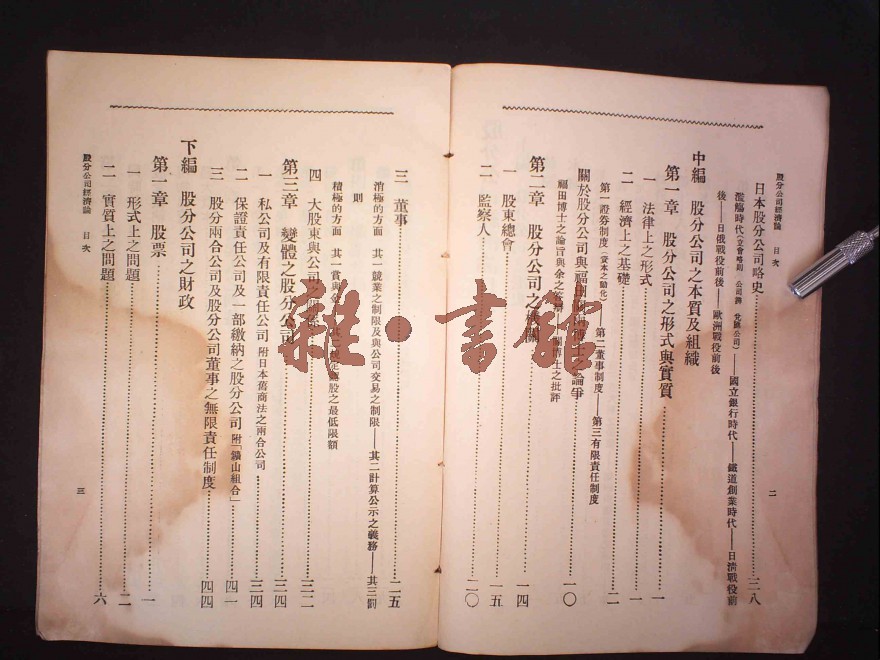 股分公司經濟論 目次
日本股分公司略史 三八
濫觴時代 ——國立銀行時代——鐵道創業時代——日清戰役前
後——日俄戰役前後——歐洲戰役前後
中編 股分公司之本質及組織
第一章 股分公司之形式與實質 一
一 法律上之形式 一
二 經濟上之基礎 二
第一證券制度(資本之動化)——第二董事制度——第三有限責任制度
關於股分公司與福田博士之論爭 一〇
福田博士之論旨與余之 博士之批評
第二章 股分公司之機關 一四
一 股東總會 一五
二 監察人 二〇
二
三 董事 二五
消極的方面 其一競業之制限及與公司交易之制限——其二計算公示之義務——其三罰
則
積極的方面 其一賞與 股之最低限額
四 大股東與公司之 三二
第三章 變體之股分公司 三四
一 私公司及有限責任公司 附日本舊商法之兩合公司 三四
二 保證責任公司及一部繳納之股分公司 附「鑛山組合」 四一
三 股分兩合公司及股分公司董事之無限責任制度 四四
下編 股分公司之財政
第一章 股票 一
一 形式上之問題 二
二 實質上之問題 六
股分公司經濟論 目次
三
雜·書館